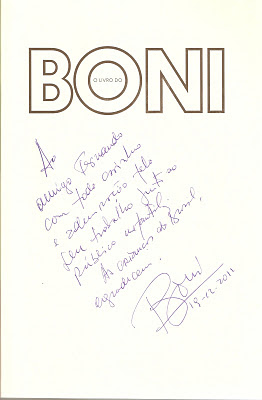 O LIVRO DO
BONI
Ao
amigo Fernando
com todo carinho
e admiração pelo
seu trabalho junto ao
público infantil.
As crianças do Brasil,
agradecem.
Boni
19-12-2011